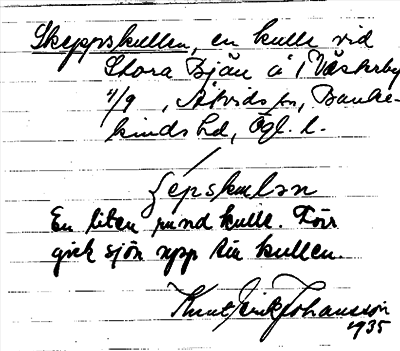 Skeppskullen, en kulle vid
Stora Bjän å i Västerby
4/9, Åtvids sn, Banke-
kinds hd, Ögl. l.
ʃepskulən
En liten rund kulle. Förr
gick sjön upp till kullen.
Knut Erik Johansson
1935